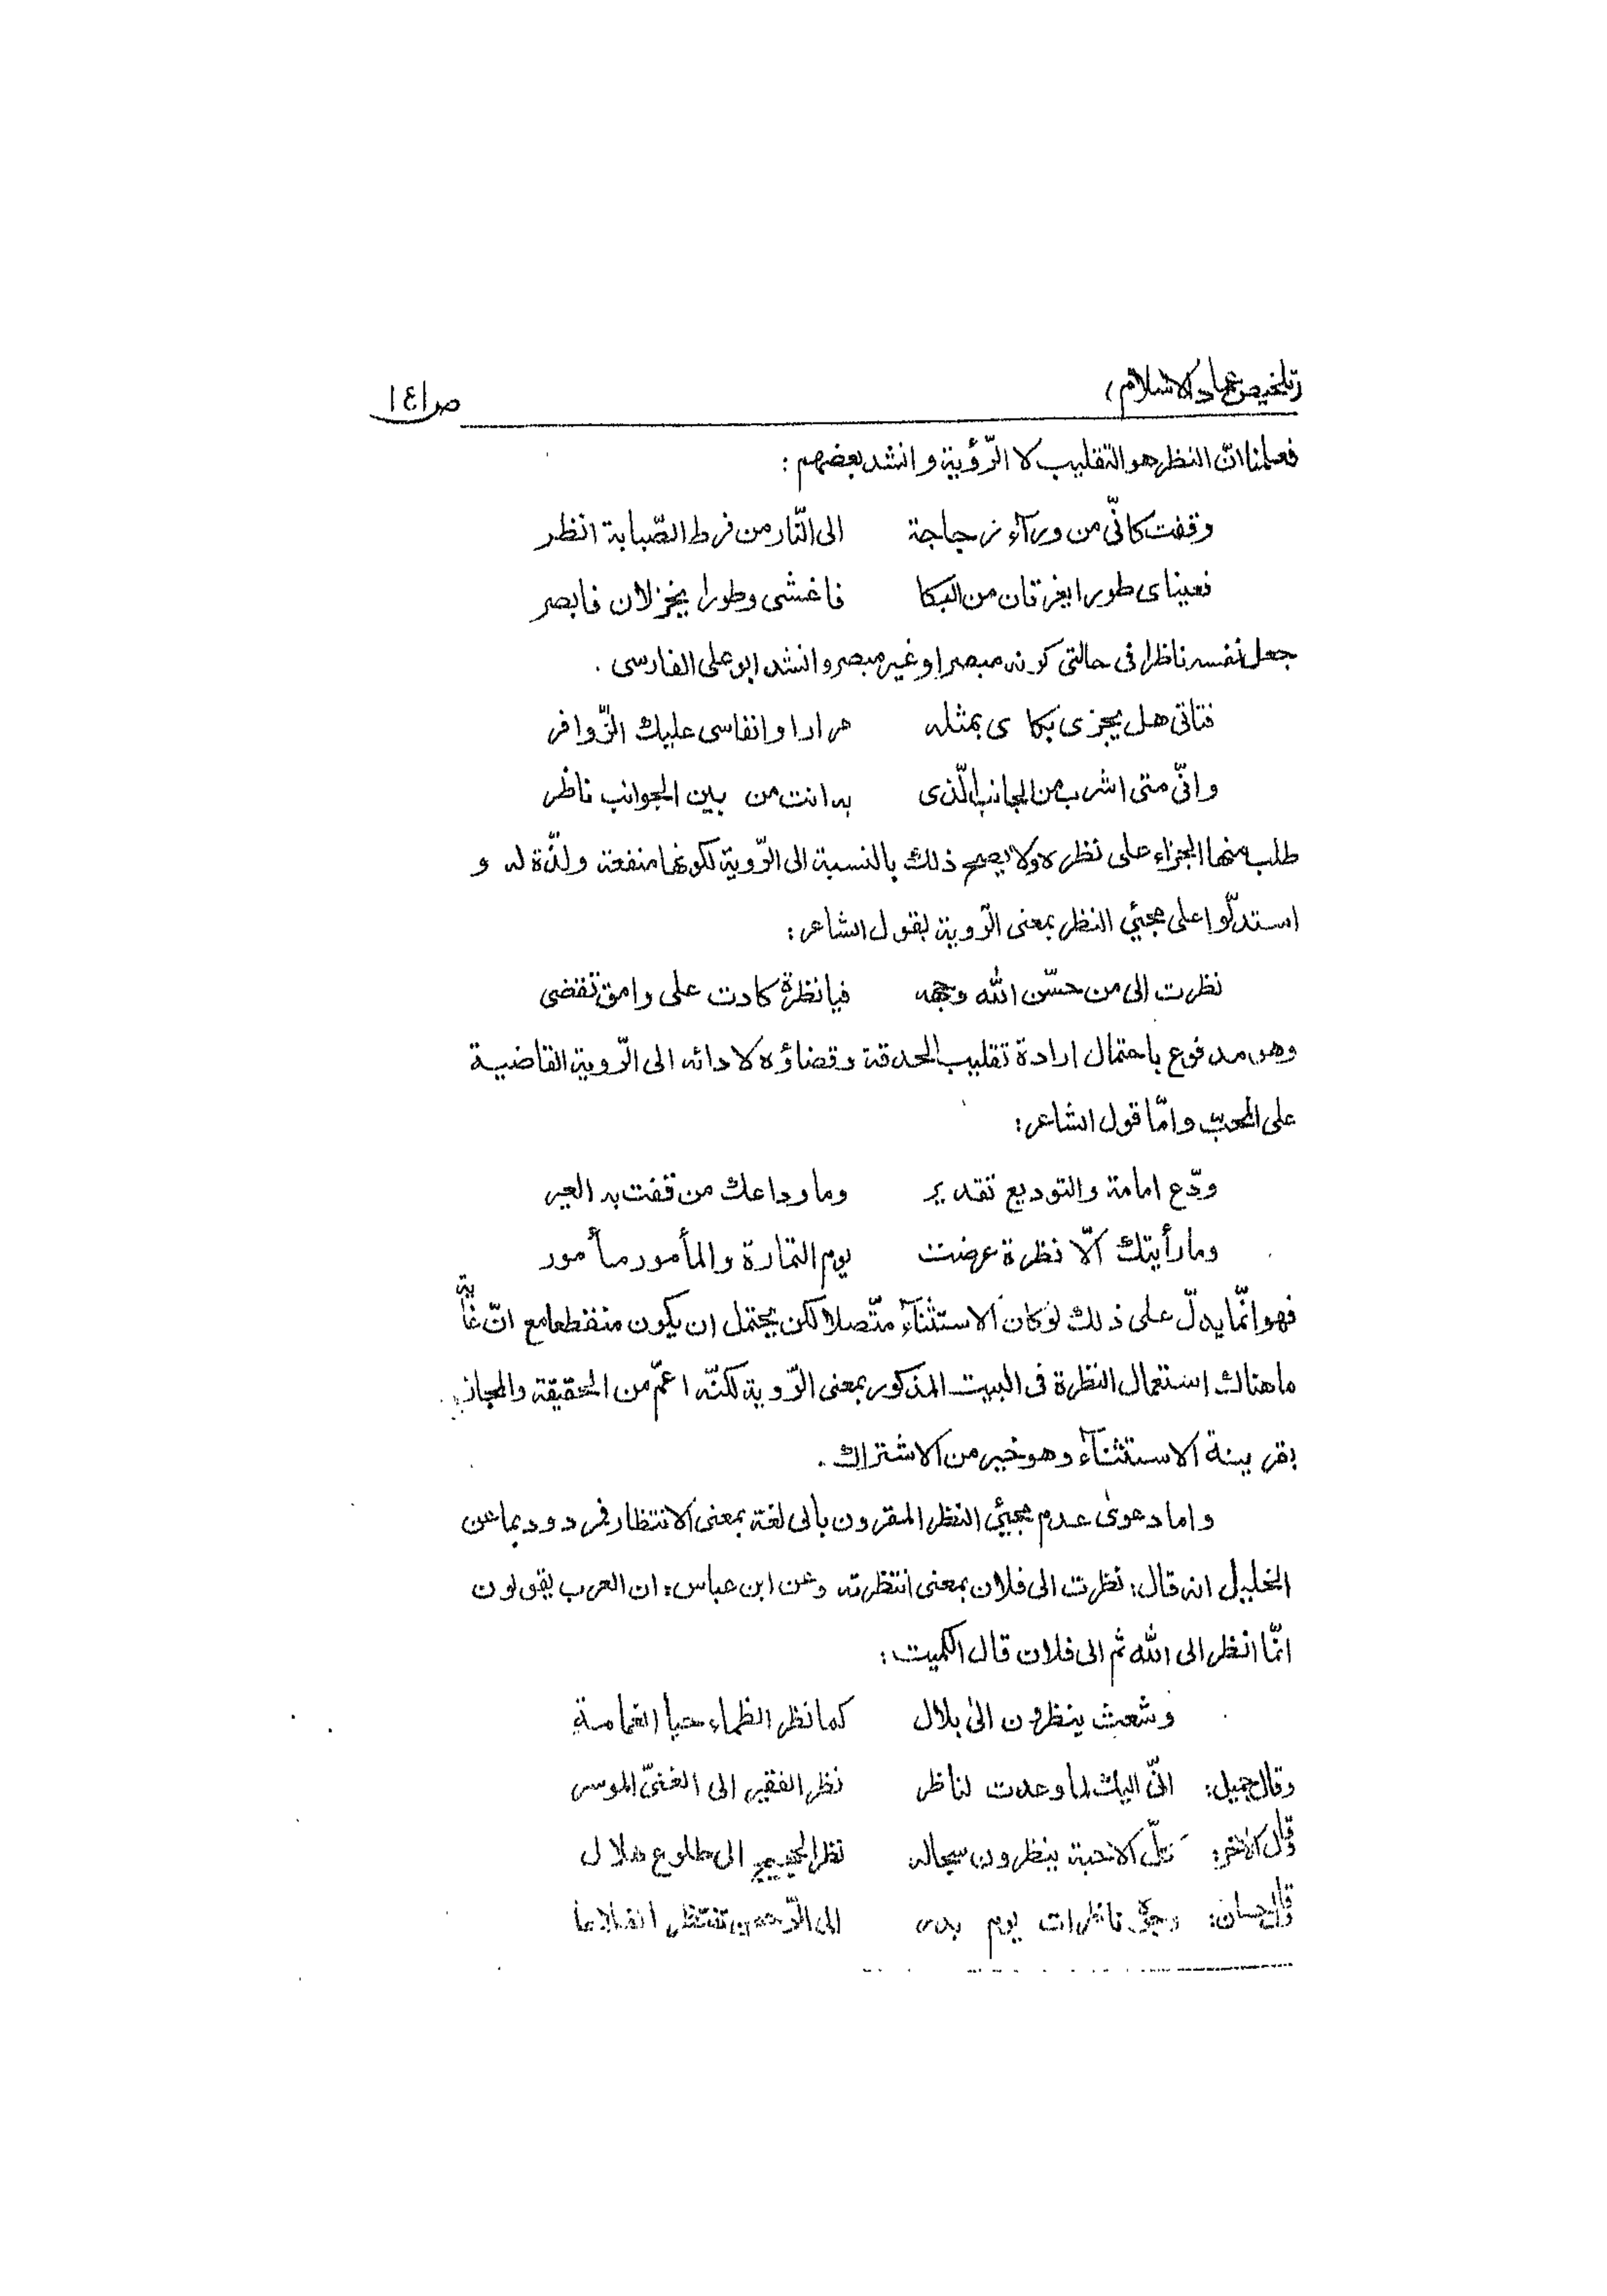 (تلخيص عماد الاسلام) ص١٤١
فعلمنا انّ النظر هو التقليب لا الرّؤية و انشد بعضهم :
وقفت كانّى من ورآء زجاجة الى النّار من فرط الصّبابة انظر
فعيناى طورا يغرقان من البكا فاغشى وطورا يخزلان فابصر
جعل نفسه ناظرا فى حالتى كونه مبصرا او غير مبصر و انشد ابو على الفارسى .
فتاتى هل يجزى بكاى بمثله مرارا و انفاسى عليك الزّوافر
وانّى متى اشرب من الجانب الّذى به انت من بين الجوانب ناظر
طلب منها الجزاء على نظره ولا يصح ذلك بالنسبة الى الرّوية لكونها منفعة ولذّة له و
استدلّوا على مجيئ النظر بمعنى الرّوية بقول الشاعر :
نظرت الى من حسّن الله وجهه فيا نظرة كادت على وامق تقضى
وهو مدفوع باحتمال ارادة تقليب الحدقة وقضاؤه لادائه الى الرّوية القاضية
على المحبّ و امّا قول الشاعر :
ودّع امامة والتوديع تقدير وما وداعك من قفت به العير
وما رأيتك الّا نظرة عرضت يوم التمارة والمأمور مأمور
فهو انّما يدلّ على ذلك لو كان الاستثنآء متّصلا لكن يحتمل ان يكون منقطعا مع انّ غاية
ما هناك استعمال النظرة فى البيت المذكور بمعنى الرّوية لكنّه اعمّ من الحقيقة والمجاز
بقرينة الاستثنآء وهو خير من الاشتراك .
و اما دعوى عدم مجيئ النظر المقرون بالى لغة بمعنى الانتظار فمردود بما عن
الخليل انه قال : نظرت الى فلان بمعنى انتظرته وعن ابن عباس : ان العرب يقولون
انّما انظر الى الله ثم الى فلان قال الكميت :
وشعث ينظرون الى بلال كما نظر الظماء حيا الغمامة
وقال جميل : انّى اليك لما وعدت لناظر نظر الفقير الى الغنىّ الموسر
وقال الاخر : كلّ الاحبة ينظرون سجاله نظر الحجيج الى طلوع هلال
وقال حسان : وجوه ناظرات يوم بدر الى الرّحمن تنتظر